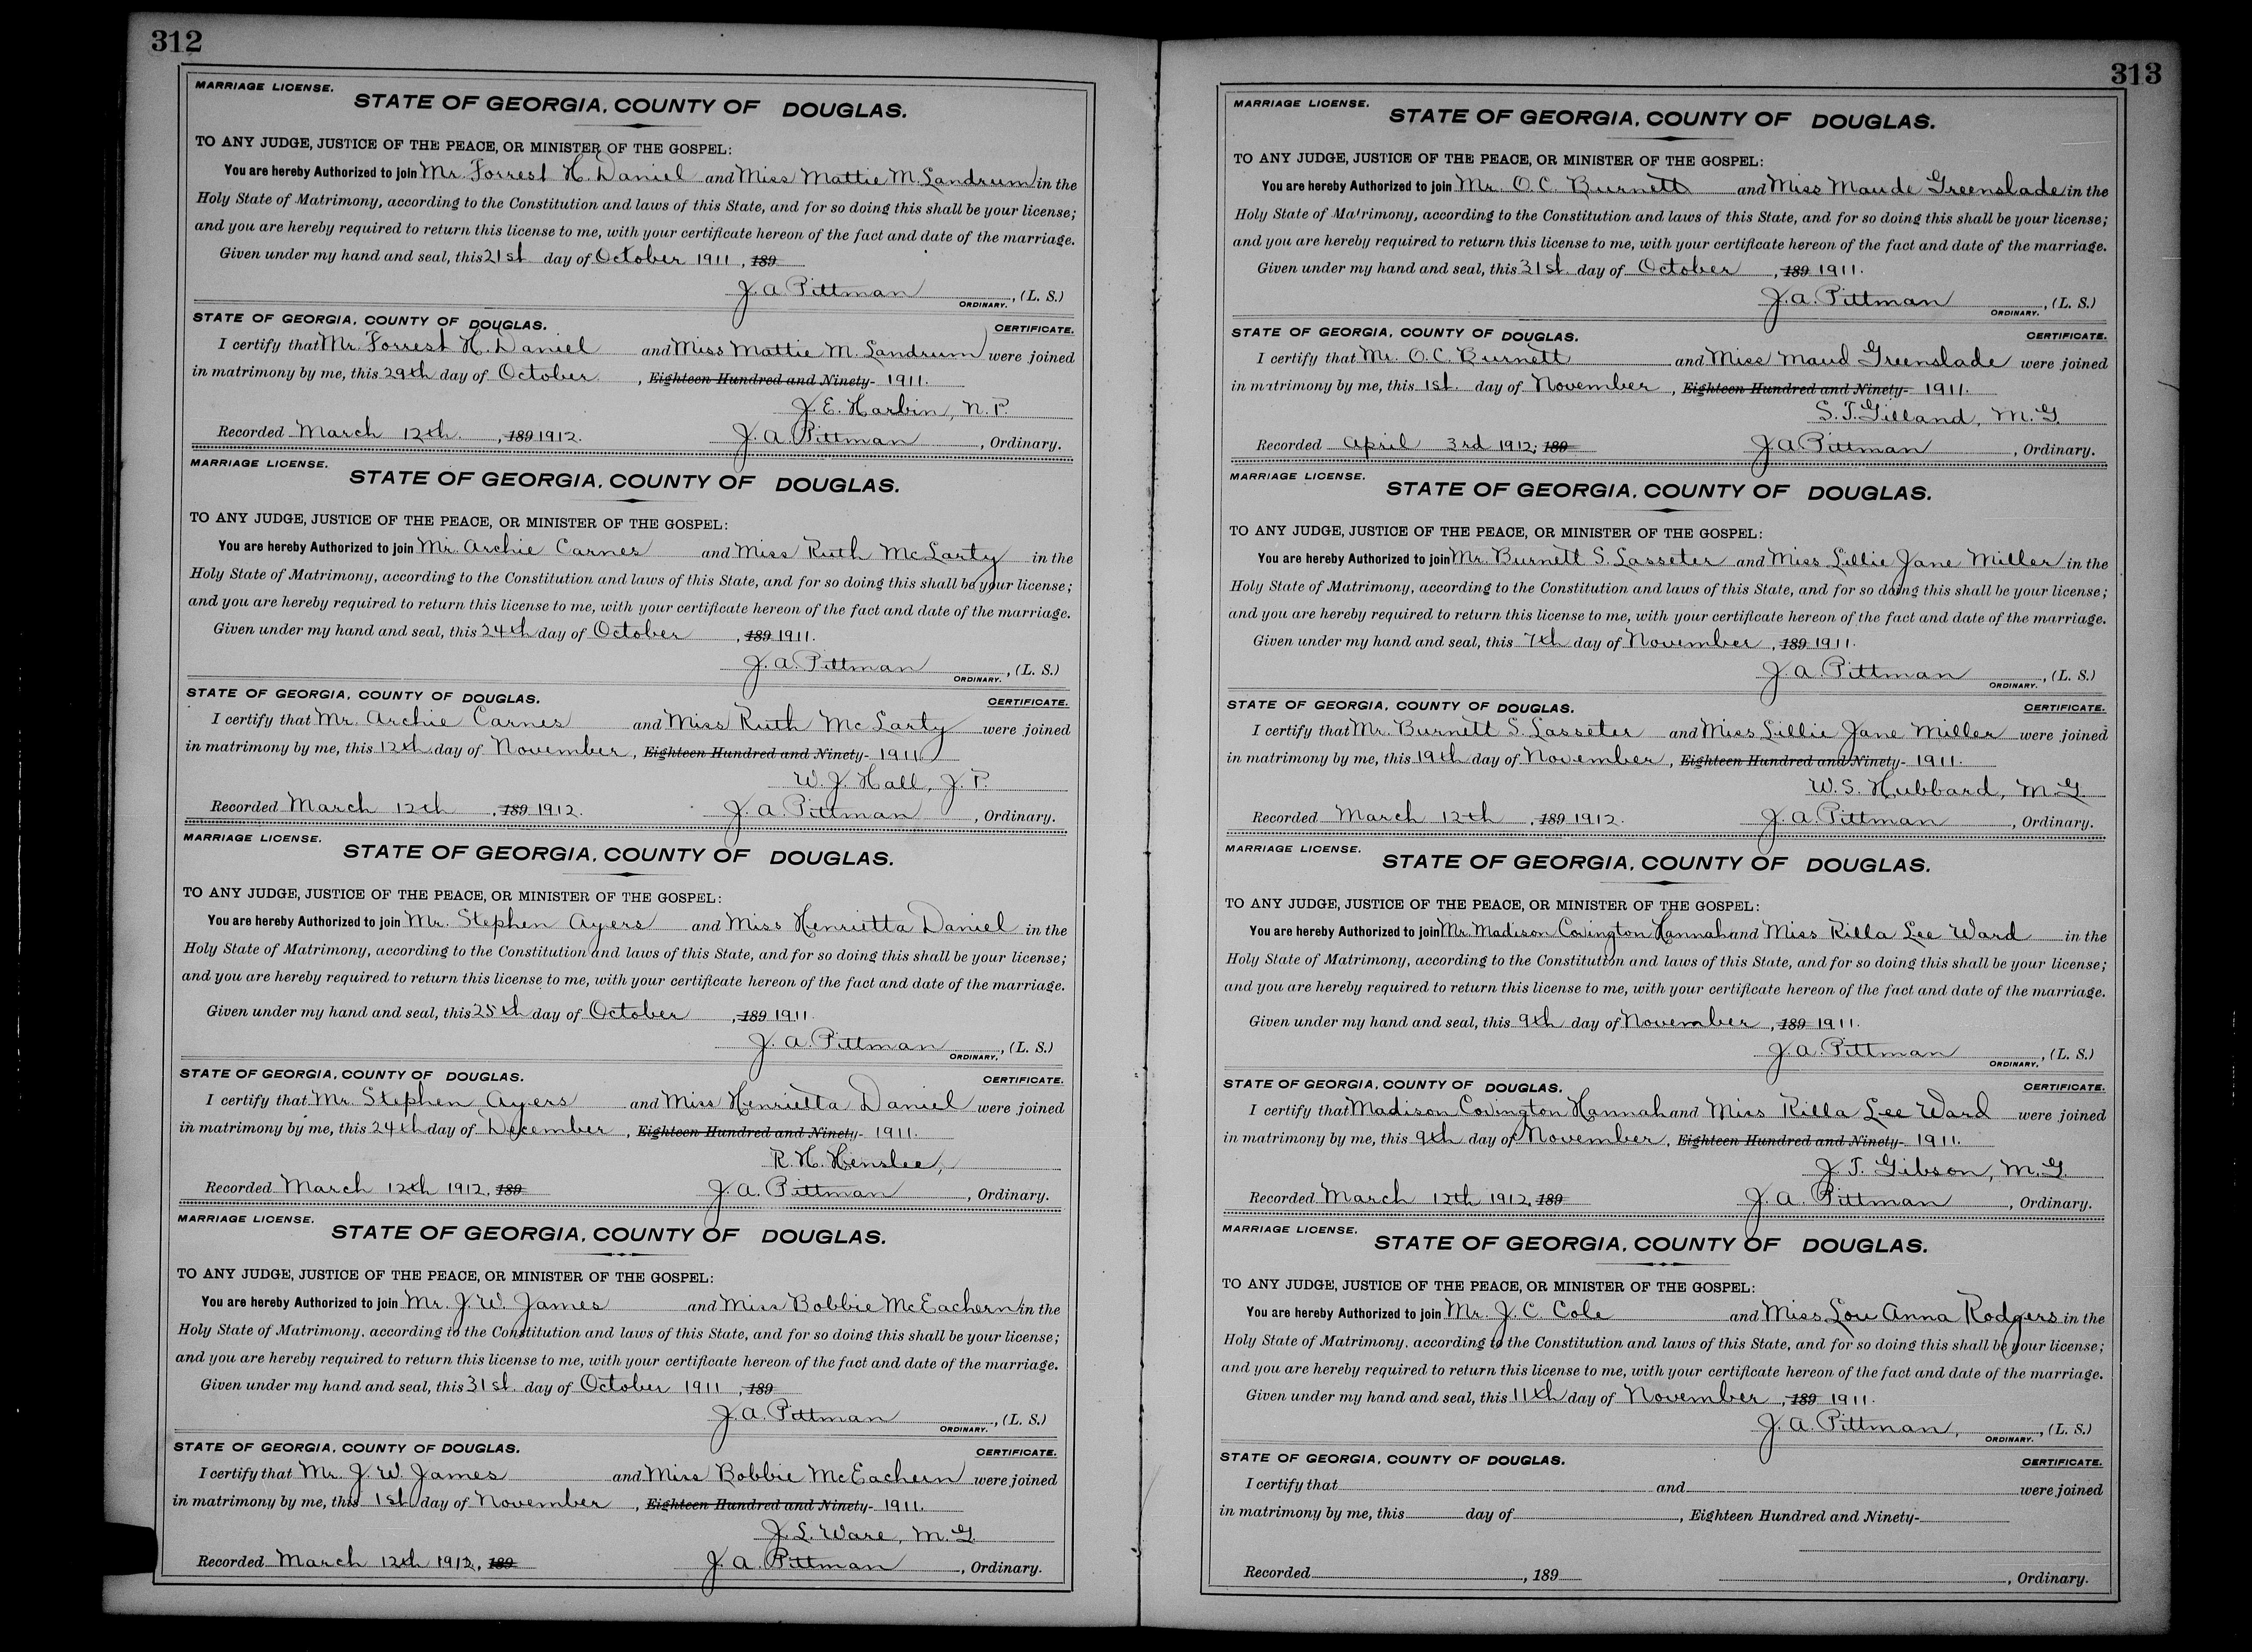 312
MARRIAGE LICENSE.
STATE OF GEORGIA, COUNTY OF DOUGLAS.
TO ANY JUDGE, JUSTICE OF THE PEACE, OR MINISTER OF THE GOSPEL:
You are hereby Authorized to join Mr. Forrest H. Daniel and Miss Mattie M. Landrum in the
Holy State of Matrimony, according to the Constitution and laws of this State, and for so doing this shall be your license;
and you are hereby required to return this license to me, with your certificate hereon of the fact and date of the marriage.
Given under my hand and seal, this 21st day of October 1911, 189
J. A. Pittman
ORDINARY. , (L. S.)
STATE OF GEORGIA, COUNTY OF DOUGLAS. CERTIFICATE.
I certify that Mr. Forrest H. Daniel and Miss Mattie M. Landrum were joined
in matrimony by me, this 29th day of October, Eighteen Hundred and Ninety- 1911.
J. E. Harbin, N. P.
Recorded March 12th, 189 1912. J. A. Pittman, Ordinary.
MARRIAGE LICENSE.
STATE OF GEORGIA, COUNTY OF DOUGLAS.
TO ANY JUDGE, JUSTICE OF THE PEACE, OR MINISTER OF THE GOSPEL:
You are hereby Authorized to join Mr. Archie Carnes and Miss Ruth McLarty in the
Holy State of Matrimony, according to the Constitution and laws of this State, and for so doing this shall be your license;
and you are hereby required to return this license to me, with your certificate hereon of the fact and date of the marriage.
Given under my hand and seal, this 24th day of October, 189 1911.
J. A. Pittman
ORDINARY. , (L. S.)
STATE OF GEORGIA, COUNTY OF DOUGLAS. CERTIFICATE.
I certify that Mr. Archie Carnes and Miss Ruth McLarty were joined
in matrimony by me, this 12th day of November, Eighteen Hundred and Ninety- 1911
W. J. Hall, J. P.
Recorded March 12th, 189 1912. J. A. Pittman, Ordinary.
MARRIAGE LICENSE.
STATE OF GEORGIA, COUNTY OF DOUGLAS.
TO ANY JUDGE, JUSTICE OF THE PEACE, OR MINISTER OF THE GOSPEL:
You are hereby Authorized to join Mr. Stephen Ayers and Miss Henrietta Daniel in the
Holy State of Matrimony, according to the Constitution and laws of this State, and for so doing this shall be your license;
and you are hereby required to return this license to me, with your certificate hereon of the fact and date of the marriage.
Given under my hand and seal, this 25th day of October, 189 1911.
J. A. Pittman
ORDINARY. , (L. S.)
STATE OF GEORGIA, COUNTY OF DOUGLAS. CERTIFICATE.
I certify that Mr. Stephen Ayers and Miss Henrietta Daniel were joined
in matrimony by me, this 24th day of December, Eighteen Hundred and Ninety- 1911.
R. H. Henslee,
Recorded March 12th 1912, 189 J. A. Pittman, Ordinary.
MARRIAGE LICENSE.
STATE OF GEORGIA, COUNTY OF DOUGLAS.
TO ANY JUDGE, JUSTICE OF THE PEACE, OR MINISTER OF THE GOSPEL:
You are hereby Authorized to join Mr. J. W. James and Miss Bobbie McEachern in the
Holy State of Matrimony, according to the Constitution and laws of this State, and for so doing this shall be your license;
and you are hereby required to return this license to me, with your certificate hereon of the fact and date of the marriage.
Given under my hand and seal, this 31st day of October 1911, 189
J. A. Pittman
ORDINARY. , (L. S.)
STATE OF GEORGIA, COUNTY OF DOUGLAS. CERTIFICATE.
I certify that Mr. J. W. James and Miss Bobbie McEachern were joined
in matrimony by me, this 1st day of November, Eighteen Hundred and Ninety- 1911.
J. L. Ware, M. G.
Recorded March 12th 1912, 189 J. A. Pittman, Ordinary.
313
MARRIAGE LICENSE.
STATE OF GEORGIA, COUNTY OF DOUGLAS.
TO ANY JUDGE, JUSTICE OF THE PEACE, OR MINISTER OF THE GOSPEL:
You are hereby Authorized to join Mr. O. C. Burnett and Miss Maude Greenslade in the
Holy State of Matrimony, according to the Constitution and laws of this State, and for so doing this shall be your license;
and you are hereby required to return this license to me, with your certificate hereon of the fact and date of the marriage.
Given under my hand and seal, this 31st day of October, 189 1911.
J. A. Pittman
ORDINARY. , (L. S.)
STATE OF GEORGIA, COUNTY OF DOUGLAS. CERTIFICATE.
I certify that Mr. O. C. Burnett and Miss Maud Greenslade were joined
in matrimony by me, this 1st day of November, Eighteen Hundred and Ninety- 1911.
S. T. Gilland, M. G.
Recorded April 3rd 1912, 189 J. A. Pittman, Ordinary.
MARRIAGE LICENSE.
STATE OF GEORGIA, COUNTY OF DOUGLAS.
TO ANY JUDGE, JUSTICE OF THE PEACE, OR MINISTER OF THE GOSPEL:
You are hereby Authorized to join Mr. Burnett S. Lasseter and Miss Lillie Jane Miller in the
Holy State of Matrimony, according to the Constitution and laws of this State, and for so doing this shall be your license;
and you are hereby required to return this license to me, with your certificate hereon of the fact and date of the marriage.
Given under my hand and seal, this 7th day of November, 189 1911.
J. A. Pittman
ORDINARY. , (L. S.)
STATE OF GEORGIA, COUNTY OF DOUGLAS. CERTIFICATE.
I certify that Mr. Burnett S. Lasseter and Miss Lillie Jane Miller were joined
in matrimony by me, this 19th day of November, Eighteen Hundred and Ninety- 1911.
W. S. Hubbard, M. G.
Recorded March 12th, 189 1912. J. A. Pittman, Ordinary.
MARRIAGE LICENSE.
STATE OF GEORGIA, COUNTY OF DOUGLAS.
TO ANY JUDGE, JUSTICE OF THE PEACE, OR MINISTER OF THE GOSPEL:
You are hereby Authorized to join Mr. Madison Covington Hannah and Miss Rilla Lee Ward in the
Holy State of Matrimony, according to the Constitution and laws of this State, and for so doing this shall be your license;
and you are hereby required to return this license to me, with your certificate hereon of the fact and date of the marriage.
Given under my hand and seal, this 9th day of November, 189 1911.
J. A. Pittman
ORDINARY. , (L. S.)
STATE OF GEORGIA, COUNTY OF DOUGLAS. CERTIFICATE.
I certify that Madison Covington Hannah and Miss Rilla Lee Ward were joined
in matrimony by me, this 9th day of November, Eighteen Hundred and Ninety- 1911.
J. T. Gibson, M. G
Recorded March 12th 1912, 189 J. A. Pittman, Ordinary.
MARRIAGE LICENSE.
STATE OF GEORGIA, COUNTY OF DOUGLAS.
TO ANY JUDGE, JUSTICE OF THE PEACE, OR MINISTER OF THE GOSPEL:
You are hereby Authorized to join Mr. J. C. Cole and Miss Lou Anna Rodgers in the
Holy State of Matrimony, according to the Constitution and laws of this State, and for so doing this shall be your license;
and you are hereby required to return this license to me, with your certificate hereon of the fact and date of the marriage.
Given under my hand and seal, this 11th day of November, 189 1911.
J. A. Pittman,
ORDINARY. , (L. S.)
STATE OF GEORGIA, COUNTY OF DOUGLAS. CERTIFICATE.
I certify that and were joined
in matrimony by me, this day of , Eighteen Hundred and Ninety-
Recorded , 189 , Ordinary.